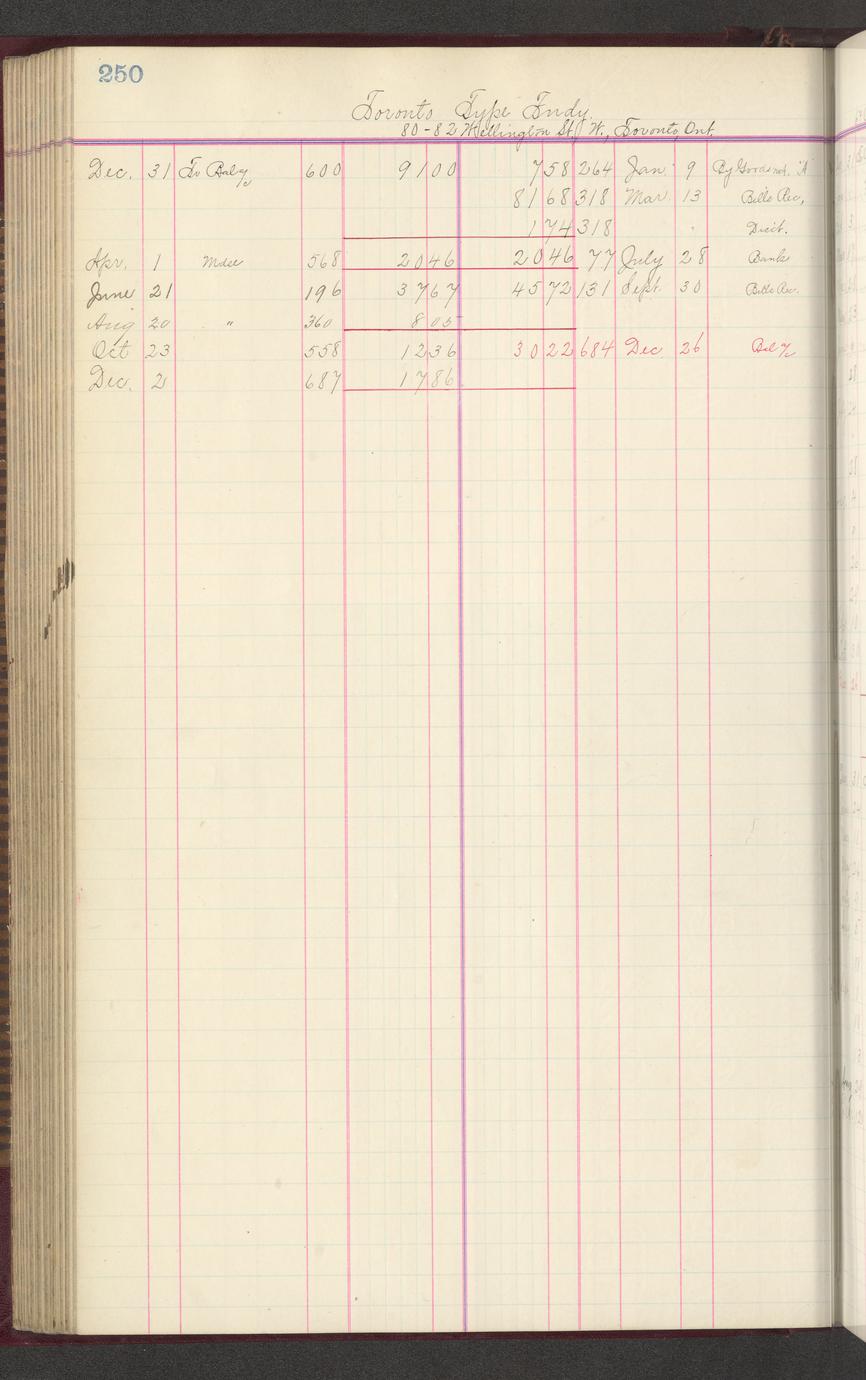 250
Toronto Type Fndy.
80-82 Wellington St. W., Toronto, Ont.
Dec. 31 To Bal a/c 600 91 00 7 58 264 Jan. 9 By Goods ret. "A
81 68 318 Mar 13 Bills Rec,
1 74 318 " Disct.
Apr. 1 Mdse 568 20 46 20 46 77 July 28 Bank
June 21 196 37 67 45 72 131 Sept. 30 Bills Rec.
Aug 20 " 360 8 05
Oct 23 558 12 36 30 22 684 Dec. 26 Bal a/c
Dec. 2 687 17 86